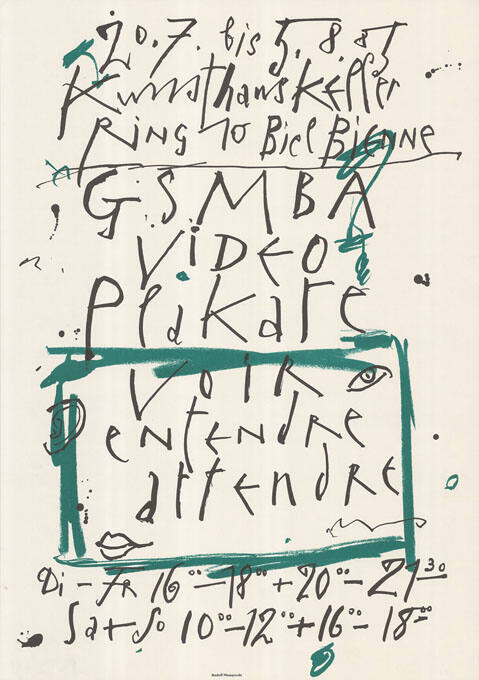 20.7. bis 5.8.85
Kunsthauskeller
Ring 10 Biel Bienne
GSMBA
VIDEO
Plakate
VOIR
entendre
attendre
Di – FR 16⁰⁰ – 18⁰⁰ + 20⁰⁰ – 21³⁰
Sa + So 10⁰⁰ – 12⁰⁰ + 16⁰⁰ – 18⁰⁰